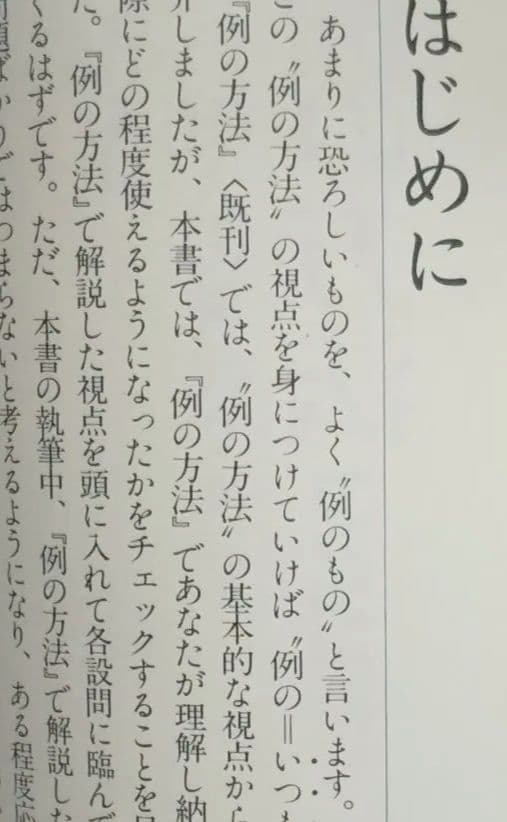 はじめに
あまりに恐ろしいものを、よく〝例のもの〟と言います。
この〝例の方法〟の視点を身につけていけば〝例の＝いつも
『例の方法』〈既刊〉では、〝例の方法〟の基本的な視点から
介しましたが、本書では、『例の方法』であなたが理解し納
際にどの程度使えるようになったかをチェックすることを目
た。『例の方法』で解説した視点を頭に入れて各設問に臨んで
くるはずです。ただ、本書の執筆中、『例の方法』で解説した
問題ばかりではつまらないと考えるようになり、ある程度応